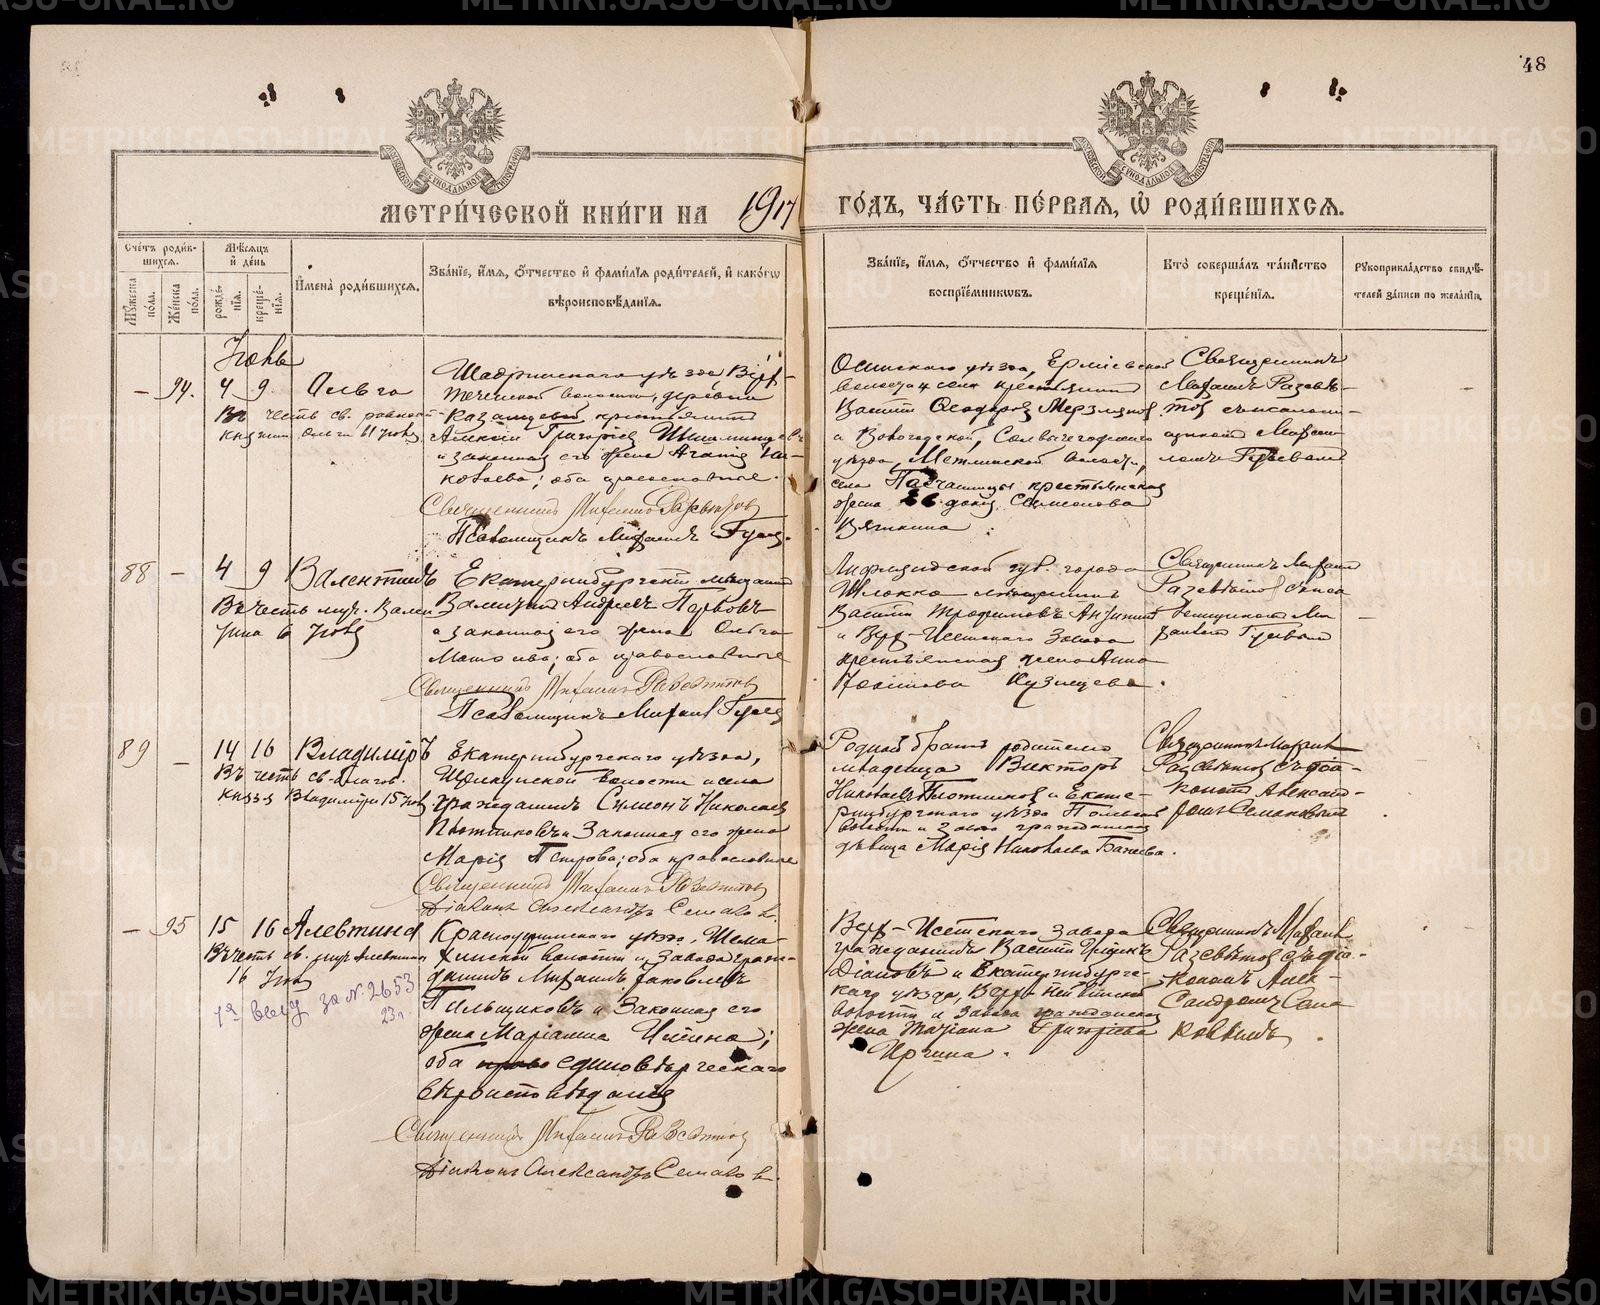 48
МЕТРИ́ЧЕСКОЙ КНИ́ГИ НА 1917 ГО́ДЪ, ЧА́СТЬ ПЕ́РВАЯ, Ѡ҆ РОДИ́ВШИХСЯ.
Сче́тъ роди́вшихся.
Мꙋ́жеска по́ла.
Же́нска по́ла.
Мѣ́сяцъ и҆ де́нь
рожде́нїя.
креще́нїя.
И҆мена̀ роди́вшихся.
Зва́нїе, и҆́мя, ѻ҆́тчество и҆ фами́лїя роди́телей, и҆ како́гѡ
вѣроисповѣ́данїя.
Зва́нїе, и҆́мя, ѻ҆́тчество и҆ фами́лїя
воспрїе́мникѡвъ.
Кто̀ соверша́лъ та́инство
креще́нїя.
Рꙋкоприкла́дство свидѣ́-
телей за́писи по жела́нїю.
Іюнь
— 94. 4 9 Ольга
Въ честь св. равноап.
княгини Ольги 11 Іюля
Шадринскаго уѣзда, Верх-
теченской волости, деревни
Казанцевой крестьянинъ
Алексій Григорьевъ
и законная его жена Агаѳія
; оба православные.
Священникъ Михаилъ Развѣтовъ
Псаломщикъ Михаилъ Гусевъ.
Осинскаго уѣзда, Ершовской
волости и села крестьянинъ
Василій Ѳеодоровъ Мерзляковъ
и Вологодской, Сольвычегодскаго
уѣзда, Метлинской волости,
села крестьянская
жена Евдокія Симеонова
Вяткина.
Священникъ
Михаилъ Развѣ-
товъ съ псалом-
щикомъ Михаи-
ломъ Гусевымъ
88 — 4 9 Валентинъ
Въ честь муч. Вален-
тина 6 Іюля
Екатеринбургскій мѣщанинъ
Валентинъ Андреевъ Пу
и законная его жена Ольга
; оба православные
Священникъ Михаилъ Развѣтовъ
Псаломщикъ Михаилъ Гусевъ
Лифляндской губ. города
Шлокка мѣщанинъ
Василій Трофимовъ
и Верх-Исетскаго Завода
крестьянская жена Анна
Кузнецова.
Священникъ Михаилъ
Развѣтовъ съ пса-
ломщикомъ Ми-
хаиломъ Гусевымъ
89 — 14 16 Владиміръ
Въ честь св. благов.
князя Владиміра 15 Іюля
Екатеринбургскаго уѣзда,
волости и села
гражданинъ Симонъ Николаевъ
Плотниковъ и законная его жена
Марія Петрова; оба православные
Священникъ Михаилъ Развѣтовъ
Діаконъ Александръ Семаковъ.
Родной братъ родителю
младенца Викторъ
Николаевъ Плотниковъ и Екате-
ринбургскаго уѣзда
волости и завода гражданская
дѣвица Марія Николаева Бажева.
Священникъ Михаилъ
Развѣтовъ съ діа-
кономъ Александ-
ромъ Семаковымъ
— 95 15 16 Алевтина
Въ честь св. муч. Алевтины
16 Іюля
за № 2653
23 г.
Красноуфимскаго уѣзда, Шема-
хинской волости и Завода граж-
данинъ Михаилъ Іаковлевъ
Пильщиковъ и законная его
жена Маріанна ;
оба единовѣрческаго
вѣроисповѣданія
Священникъ Михаилъ Развѣтовъ
Діаконъ Александръ Семаковъ.
Верх-Исетскаго Завода
гражданинъ Василій
Діановъ и Екатеринбургс-
каго уѣзда, Верх-Нейвинской
волости и завода гражданская
жена Татіана Григорьева
Иргина.
Священникъ Михаилъ
Развѣтовъ съ діа-
кономъ Алек-
сандромъ Сема-
ковымъ.
METRIKI.GASO-URAL.RU